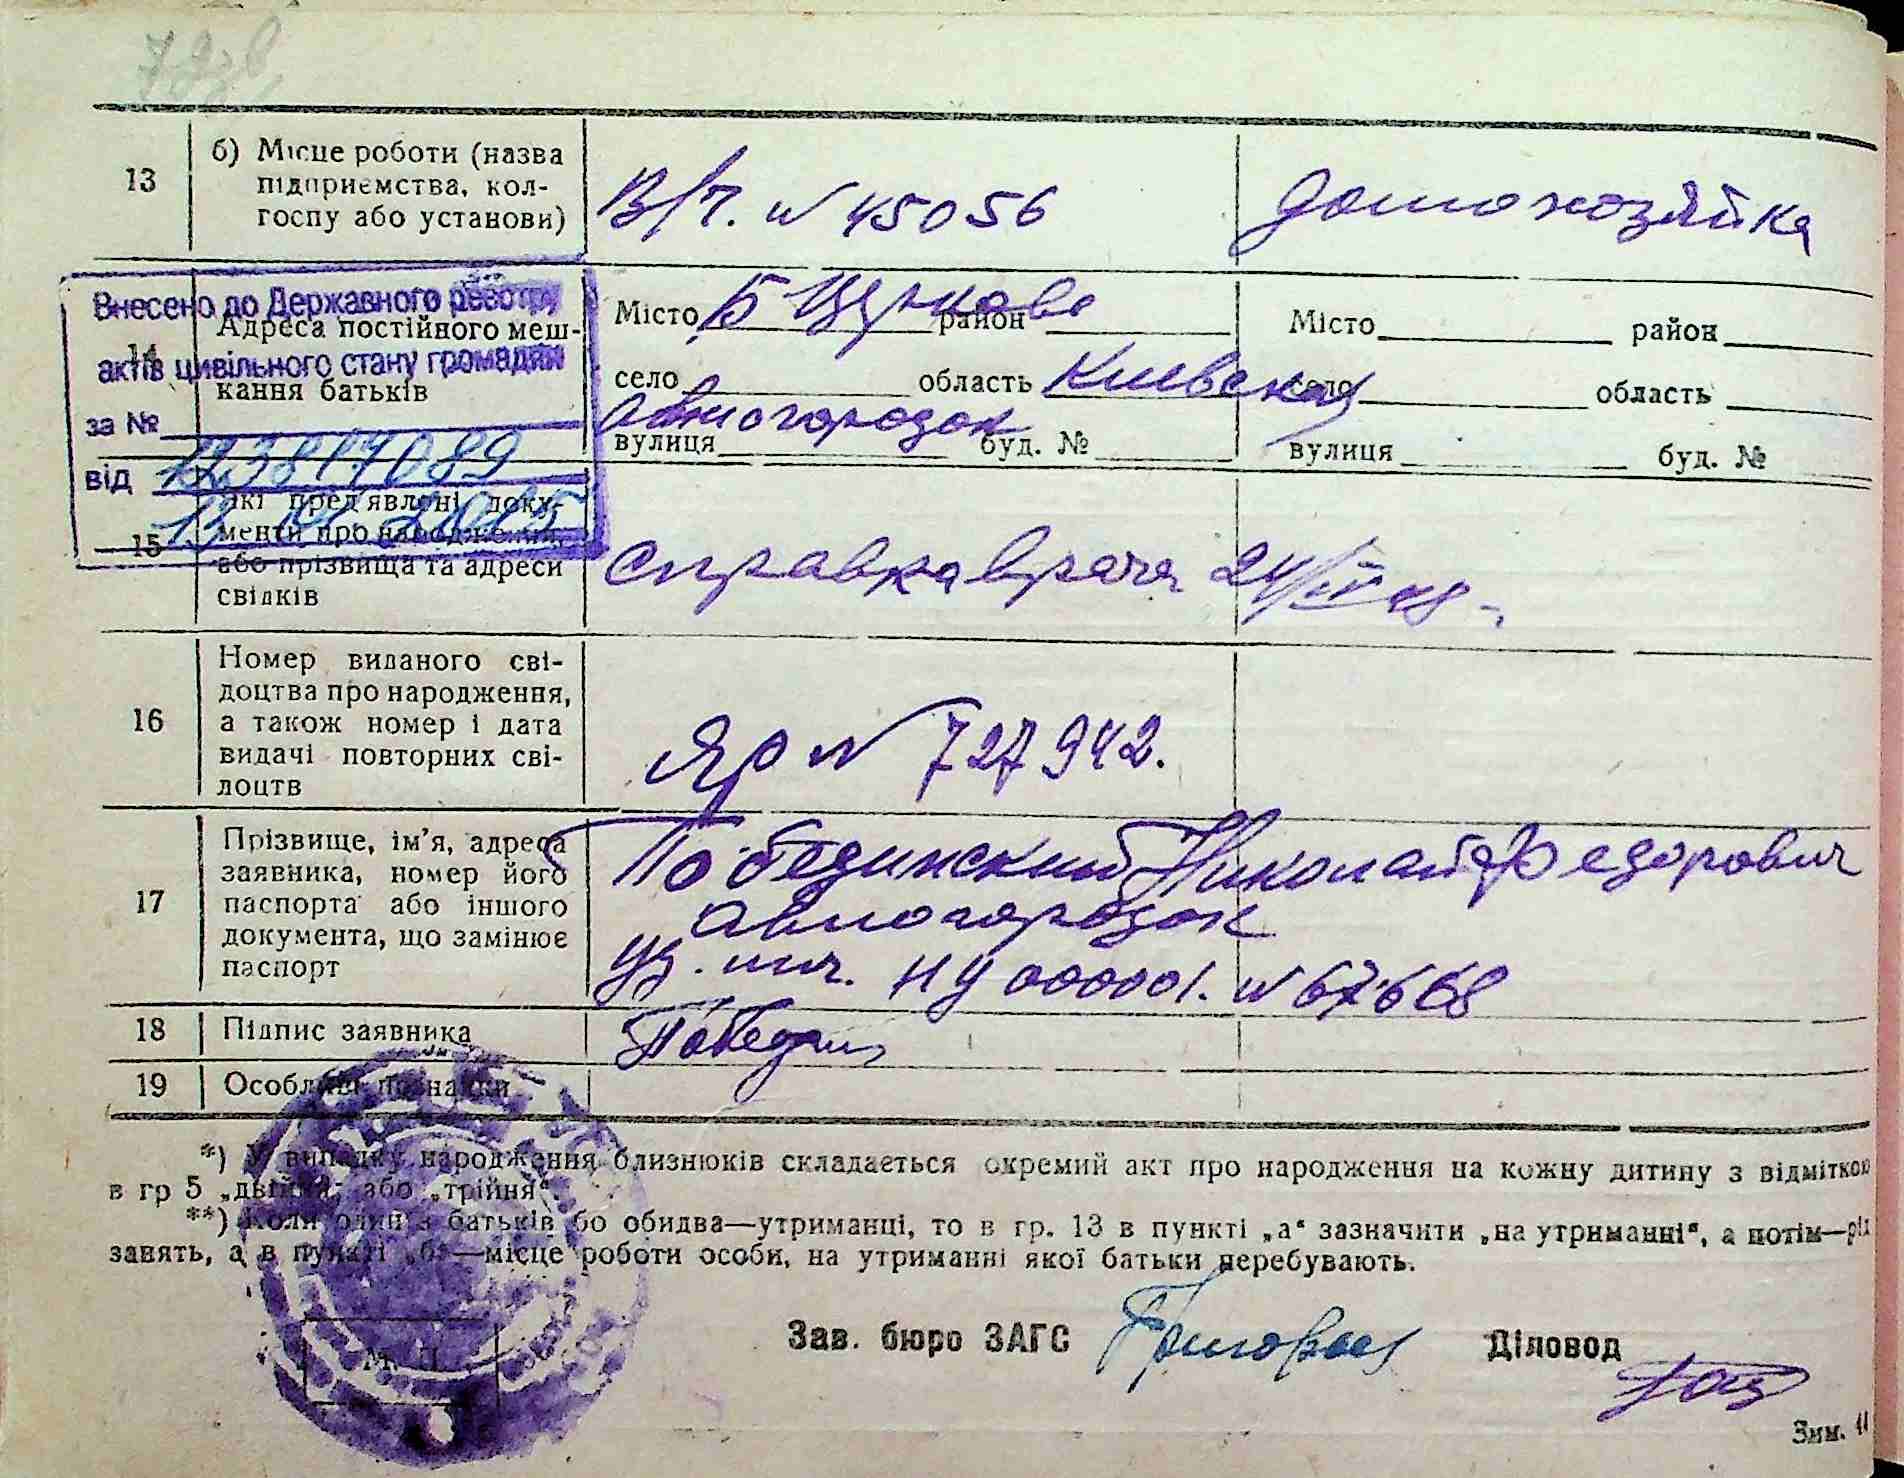 13
б) Місце роботи (назва
підприємства, кол-
госпу або установи)
В/ч. N 45056
домохозяйка
Внесено до Державного реєстру
актів цивільного стану громадян
за №
від
14
Адреса постійного меш-
кання батьків
Місто Б Церковь район
село область Киевская
Автогородок
вулиця буд. №
Місто район
село область
вулиця буд. №
15
Які пред'явлені доку-
менти про народження,
або прізвища та адреси
свідків
Справка врача 24/IV 48
16
Номер виданого сві-
доцтва про народження,
а також номер і дата
видачі повторних сві-
доцтв
ЯР N 727942.
17
Прізвище, ім'я, адреса
заявника, номер його
паспорта або іншого
документа, що замінює
паспорт
Побединский Николай Федорович
Автогородок
уд. лич. НУ 000001. N 67668
18
Підпис заявника
19
Особливі познайки
*) У випадку народження близнюків складається окремий акт про народження на кожну дитину з відміткою
в гр 5 „двійня, або „трійня“.
**) Коли один з батьків бо обидва—утриманці, то в гр. 13 в пункті „а“ зазначити „на утриманні“, а потім—рід
занять, а в пункті „б“—місце роботи особи, на утриманні якої батьки перебувають.
Зав. бюро ЗАГС
Діловод
М. П.